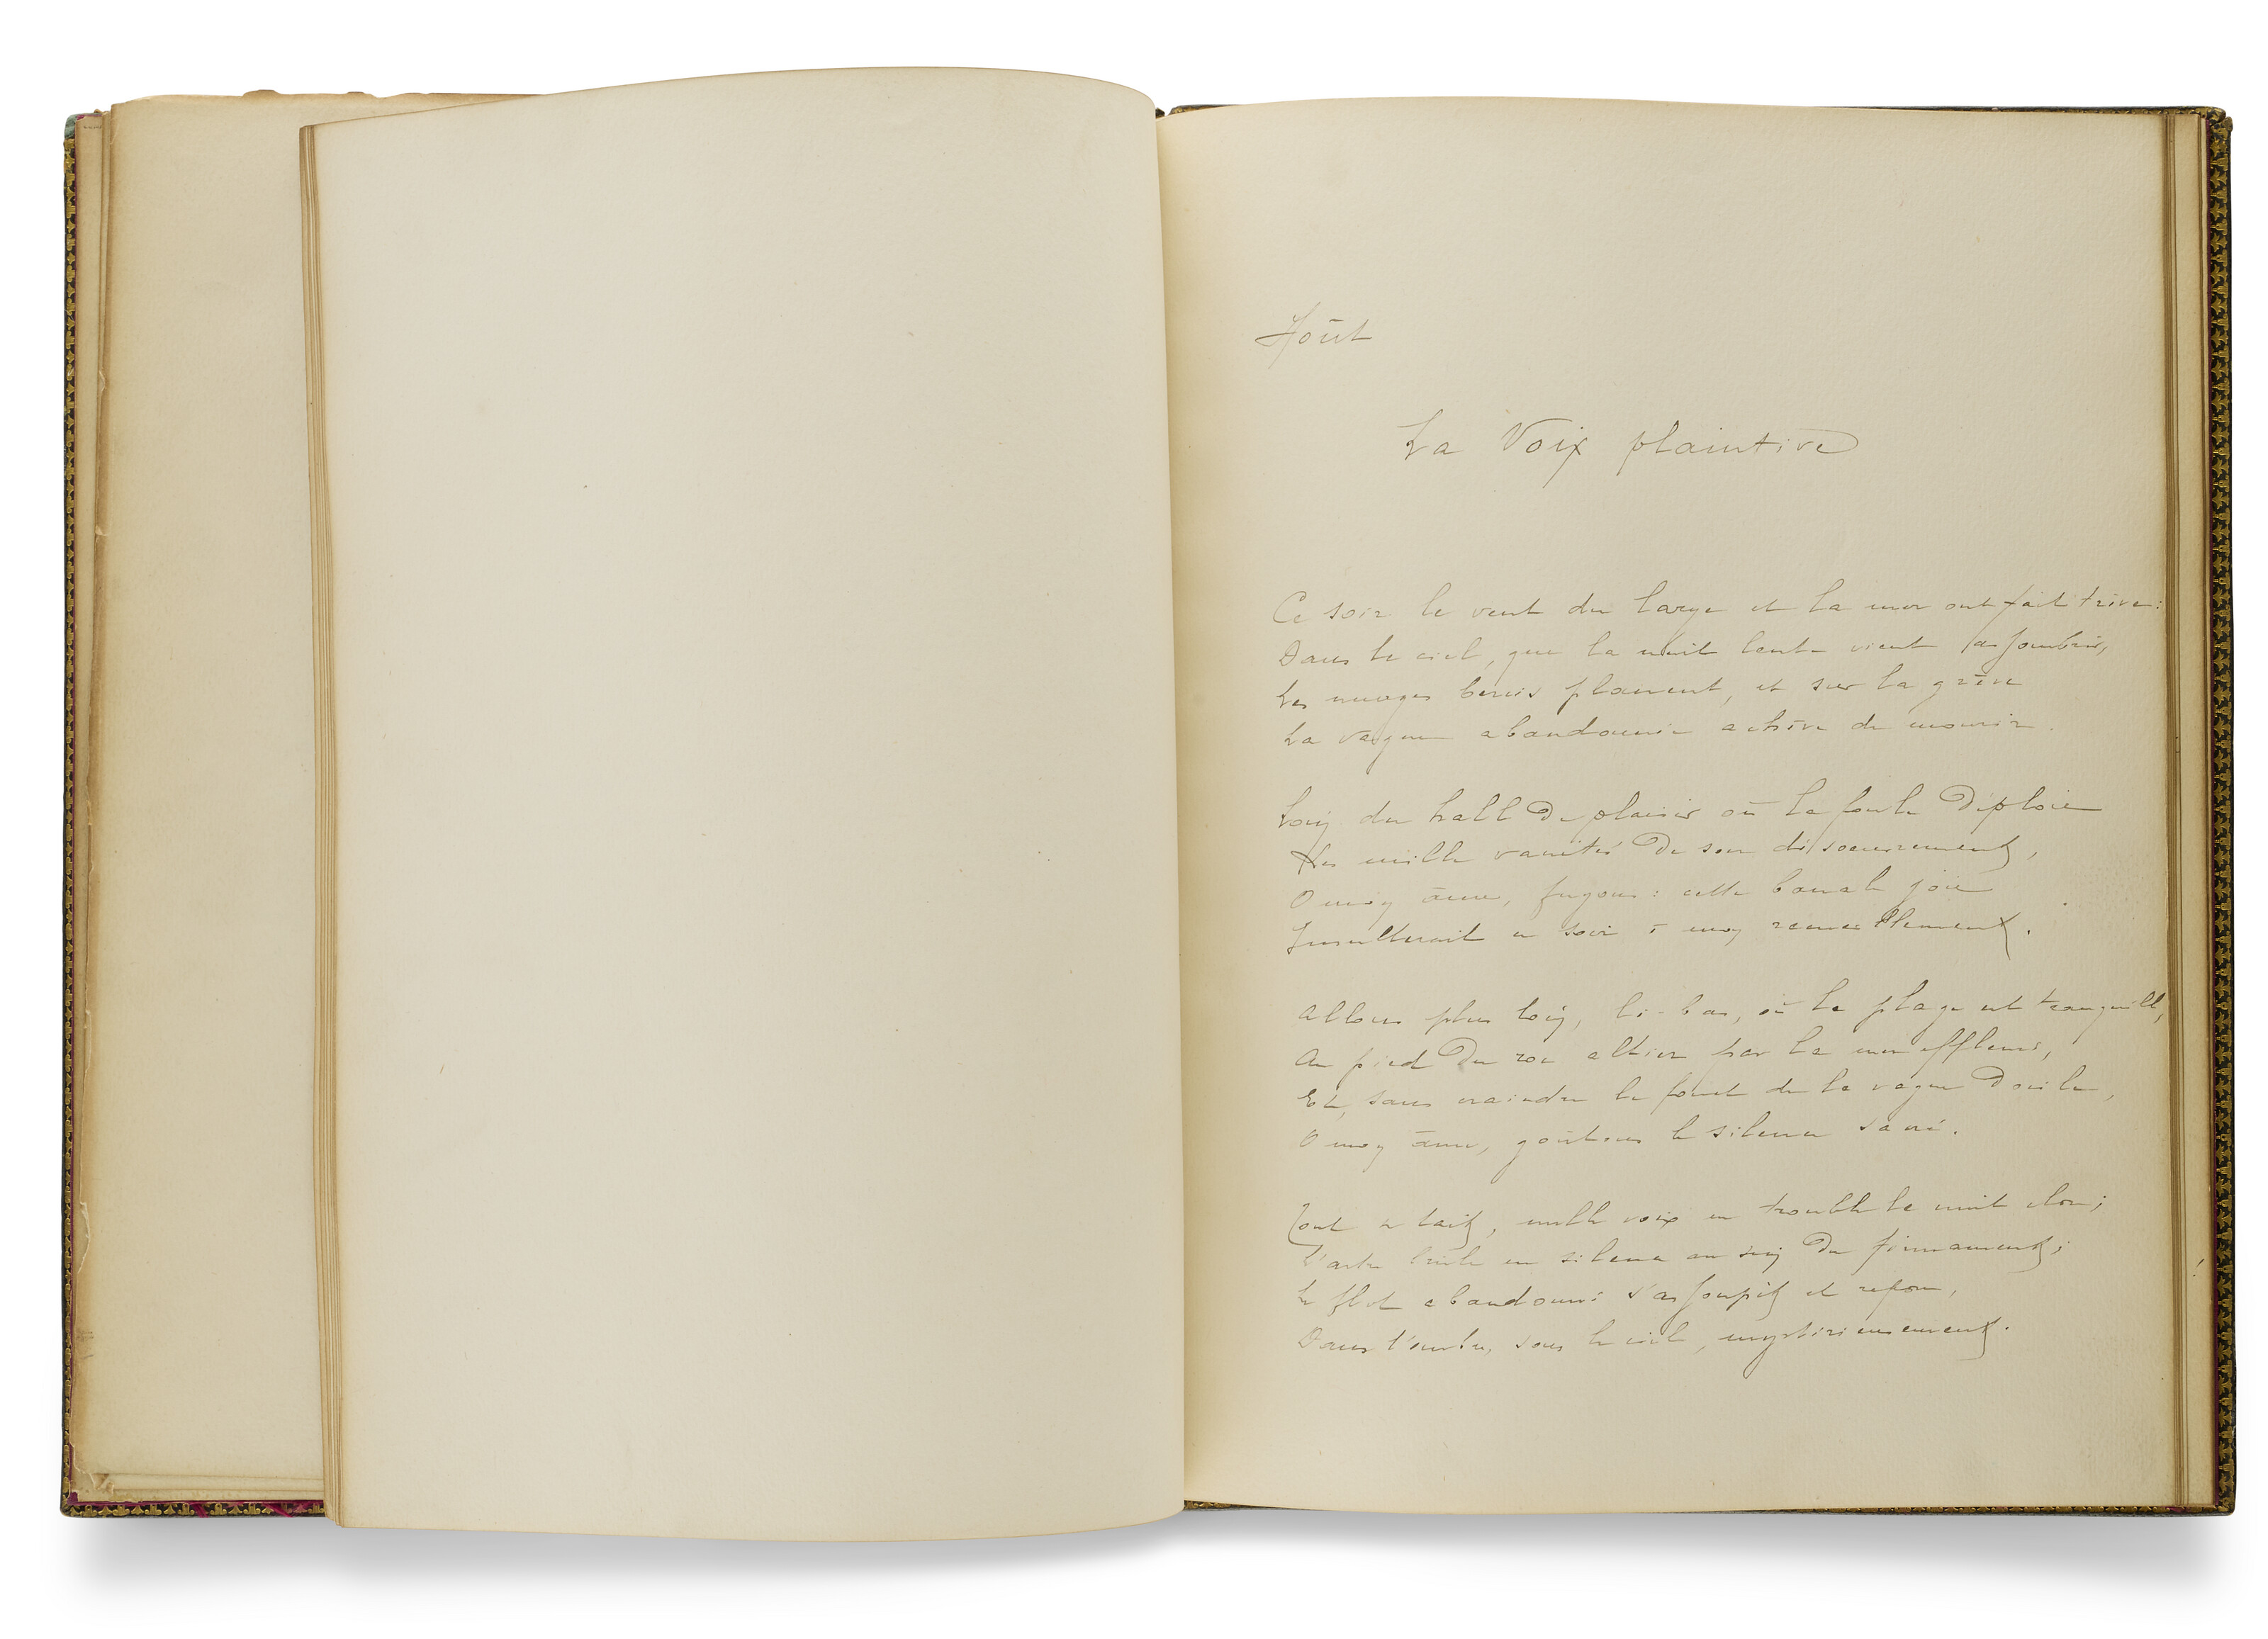 Août
La Voix plaintive
Ce soir le vent du large et la mer ont fait trêve :
Dans le ciel, que la nuit lente vient assombrir,
Les nuages bénis planent, et sur la grève
La vague abandonnée achève de mourir.
Loin du hall de plaisir où la foule déploie
Les mille vanités de son désœuvrement,
O mon âme, fuyons : cette banale joie
Insulterait ce soir à mon recueillement.
Allons plus loin, là-bas, où la plage est tranquille,
Au pied du roc altier par la mer effleuré,
Et, sans craindre le fouet de la vague docile,
O mon âme, goûtons le silence sacré.
Tout se tait, nulle voix ne trouble la nuit close ;
L'astre brûle en silence au sein du firmament ;
Le flot abandonné s'assoupit et repose,
Dans l'ombre, sous le ciel, mystérieusement.